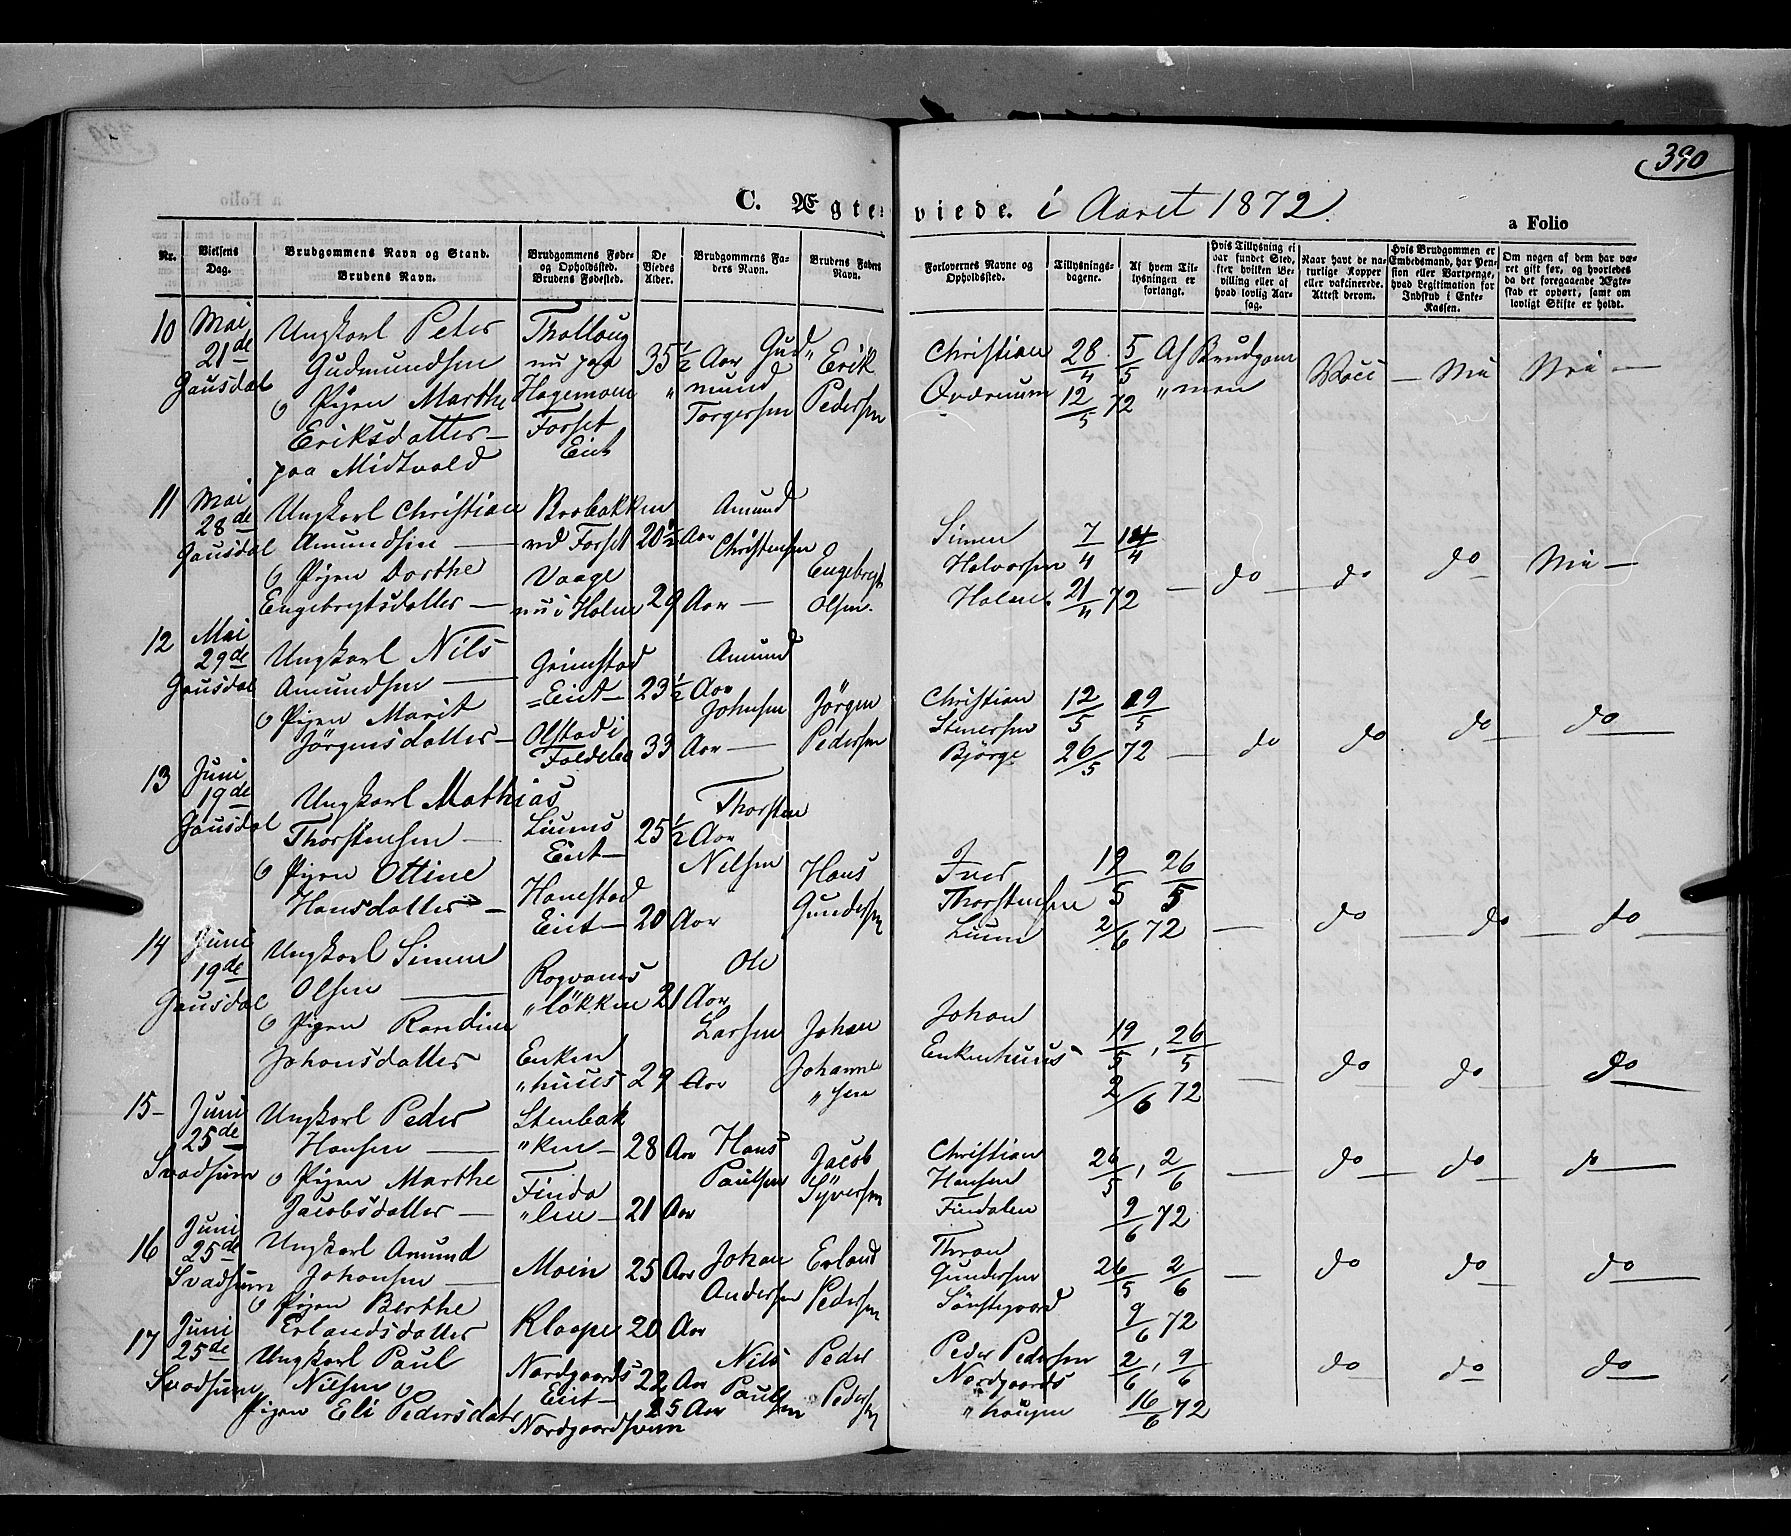 390
C. Ægteviede. i Aaret 1872.
a Folio
Nr.
Vielsens Dag.
Brudgommens Navn og Stand.
Brudens Navn.
Brudgommens Føde- og Opholdssted.
Brudens Fødested.
De Viedes Alder.
Brudgommens Faders Navn.
Brudens Faders Navn.
Forlovernes Navne og Opholdssted.
Tillysningsdagene.
Af hvem Tillysningen er forlangt.
Hvis Tillysning ei har fundet Sted, efter hvilken Bevilling eller af hvad lovlig Aarsag.
Naar havt de naturlige Kopper eller vakcinerede. Attest derom.
Hvis Brudgommen er Embedsmand, har Pension eller Vartpenge, hvad Legitimation for Indskud i Enkekassen.
Om nogen af dem har været gift før, og hvorledes da det foregaaende Ægteskab er ophørt, samt om lovligt Skifte er holdt.
10 Mai 21de Gausdal
Ungkarl Peter Gudmundsen
nu paa
35 1/2 Aar
Gudmund Torgersen
Pigen Marthe Eriksdatter paa Midtvold
Forset Eiet
Erik Pedersen
Christian
28/4 5/5 12/5 72
Af Brudgommen
11 Mai 28de Gausdal
Ungkarl Christian Amundsen
Brobakken ved Forset
20 1/2 Aar
Amund Christensen
Pigen Dorthe Engebregtsdatter
Vaage nu i Holm
29 Aar
Engebregt Olsen
Simen Halvorsen
7/4 14/4 21/4 72
do do do Nei
12 Mai 29de Gausdal
Ungkarl Nils Amundsen
Grimstad Eiet
23 1/2 Aar
Amund Johnsen
Pigen Marit Jörgensdatter
Olstad i
33 Aar
Jörgen Pedersen
Christian Stenersen Björge
12/5 19/5 26/5 72
do do do do
13 Juni 19de Gausdal
Ungkarl Mathias Thorstensen
Liums Eiet
25 1/2 Aar
Thorsten Nilsen
Pigen Ottine Hansdatter
Hanestad Eiet
20 Aar
Hans Gundersen
Iver Thorstensen Lium
19/5 26/5 2/6 72
do do do
14 Juni 19de Gausdal
Ungkarl Simen Olsen
21 Aar
Ole Larsen
Pigen Randine Johansdatter
Enkenhuus
29 Aar
Johan Johannesen
Johan Enkenhuus
19/5, 26/5 2/6 72
do do do
15 Juni 25de Svadsum
Ungkarl Peder Hansen
Stenbakken
28 Aar
Hans Paulsen
Pigen Marthe Jacobsdatter
Findalen
21 Aar
Jacob Syversen
Christian Hansen Findalen
26/5, 2/6 9/6 72
do do do
16 Juni 25de Svadsum
Ungkarl Amund Johansen
Moen
25 Aar
Johan Andersen
Pigen Berthe Erlandsdatter
Kloppe
20 Aar
Erland Pedersen
Thron Gundersen
26/5 2/6 9/6 72
do do do
17 Juni 25de Svadsum
Ungkarl Paul Nilsen
Nordgaards Eiet
22 Aar
Nils Paulsen
Pigen Eli Pedersdatr
25 Aar
Peder Pedersen
Peder Pedersen Nordgaardshougen
2/6, 9/6 16/6 72
do do do